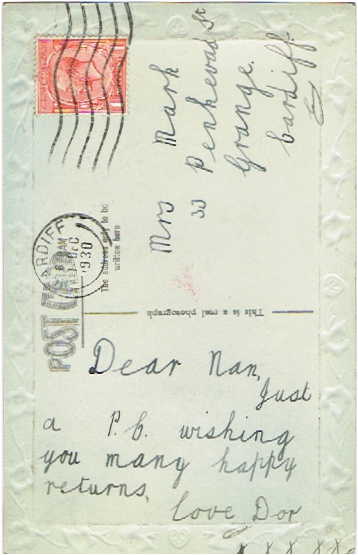 POST CARD
The address only to be
written here
CARDIFF
1930
Mrs Mark
33 Penhevad St
Grange
Cardiff
This is a real photograph
Dear Nan,
Just
a P.C. wishing
you many happy
returns,
love Dor
x x x x x